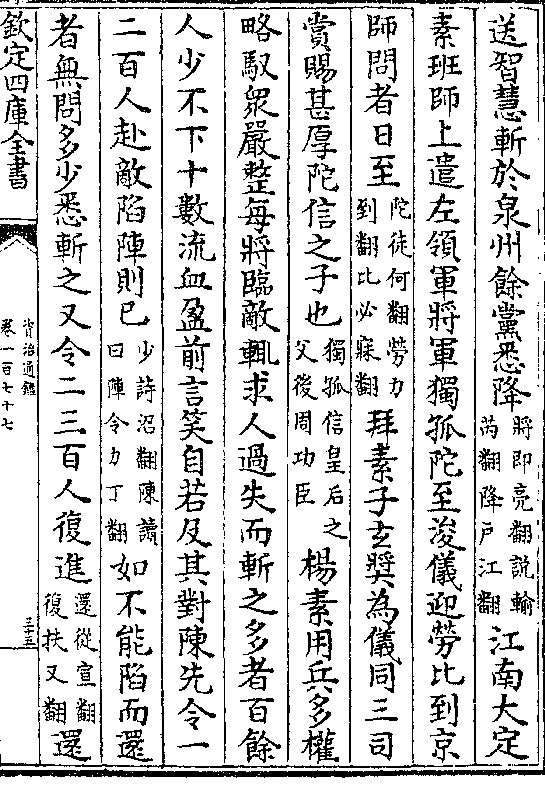 送智慧斬於泉州餘黨悉降將即亮翻説輸芮翻降戸江翻江南大定
素班師上遣左領軍將軍獨孤陀至浚儀迎勞比到京
師問者日至陀徒何翻勞力到翻比必寐翻拜素子玄奬為儀同三司
賞賜甚厚陀信之子也獨孤信皇后之父後周功臣楊素用兵多權
略馭衆嚴整每將臨敵輒求人過失而斬之多者百餘
人少不下十數流血盈前言笑自若及其對陳先令一
二百人赴敵陷陣則已少詩沼翻陳讀曰陣令力丁翻如不能陷而還
者無問多少悉斬之又令二三百人復進還從宣翻復扶又翻還
欽定四庫全書
資治通鑑
卷一百七十七
三十五